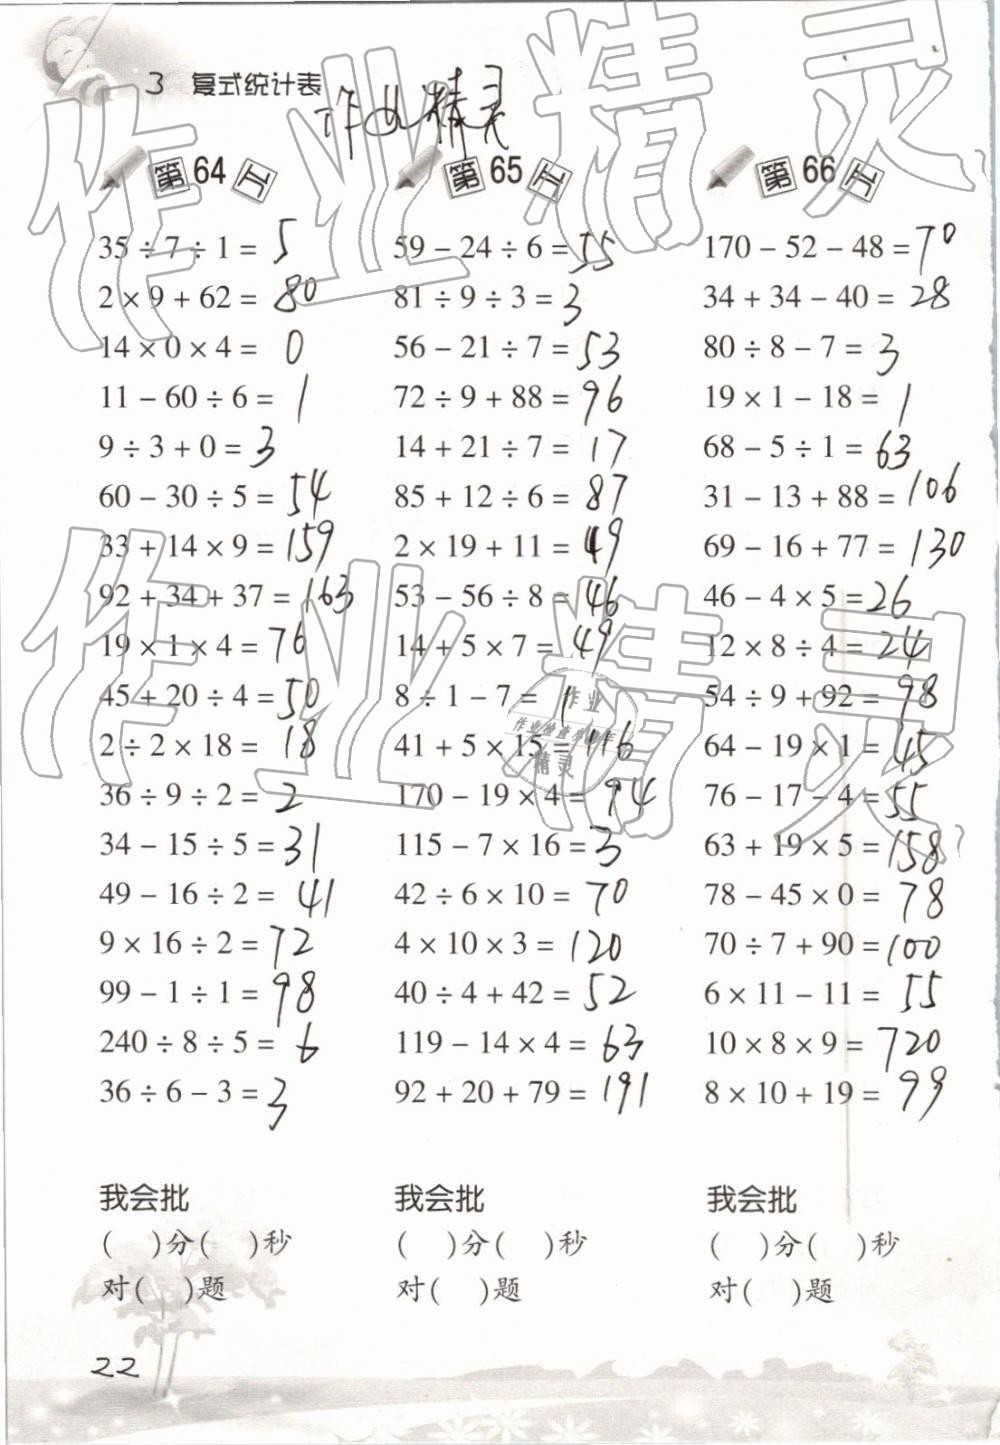 3 复式统计表
作业精灵
第64片
35 ÷ 7 ÷ 1 = 5
2 × 9 + 62 = 80
14 × 0 × 4 = 0
11 − 60 ÷ 6 = 1
9 ÷ 3 + 0 = 3
60 − 30 ÷ 5 = 54
33 + 14 × 9 = 159
92 + 34 + 37 = 163
19 × 1 × 4 = 76
45 + 20 ÷ 4 = 50
2 ÷ 2 × 18 = 18
36 ÷ 9 ÷ 2 = 2
34 − 15 ÷ 5 = 31
49 − 16 ÷ 2 = 41
9 × 16 ÷ 2 = 72
99 − 1 ÷ 1 = 98
240 ÷ 8 ÷ 5 = 6
36 ÷ 6 − 3 = 3
我会批
( )分( )秒
对( )题
第65片
59 − 24 ÷ 6 = 55
81 ÷ 9 ÷ 3 = 3
56 − 21 ÷ 7 = 53
72 ÷ 9 + 88 = 96
14 + 21 ÷ 7 = 17
85 + 12 ÷ 6 = 87
2 × 19 + 11 = 49
53 − 56 ÷ 8 = 46
14 + 5 × 7 = 49
8 ÷ 1 − 7 = 1
41 + 5 × 15 = 116
170 − 19 × 4 = 94
115 − 7 × 16 = 3
42 ÷ 6 × 10 = 70
4 × 10 × 3 = 120
40 ÷ 4 + 42 = 52
119 − 14 × 4 = 63
92 + 20 + 79 = 191
我会批
( )分( )秒
对( )题
第66片
170 − 52 − 48 = 70
34 + 34 − 40 = 28
80 ÷ 8 − 7 = 3
19 × 1 − 18 = 1
68 − 5 ÷ 1 = 63
31 − 13 + 88 = 106
69 − 16 + 77 = 130
46 − 4 × 5 = 26
12 × 8 ÷ 4 = 24
54 ÷ 9 + 92 = 98
64 − 19 × 1 = 45
76 − 17 − 4 = 55
63 + 19 × 5 = 158
78 − 45 × 0 = 78
70 ÷ 7 + 90 = 100
6 × 11 − 11 = 55
10 × 8 × 9 = 720
8 × 10 + 19 = 99
我会批
( )分( )秒
对( )题
22
作业精灵
作业精灵
作业
精灵